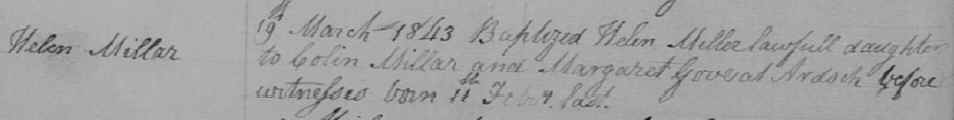 Helen Millar
19th March 1843 Baptized Helen Miller lawfull daughter
to Colin Millar and Margaret Gove at before
witnesses born 11th Febry. last.